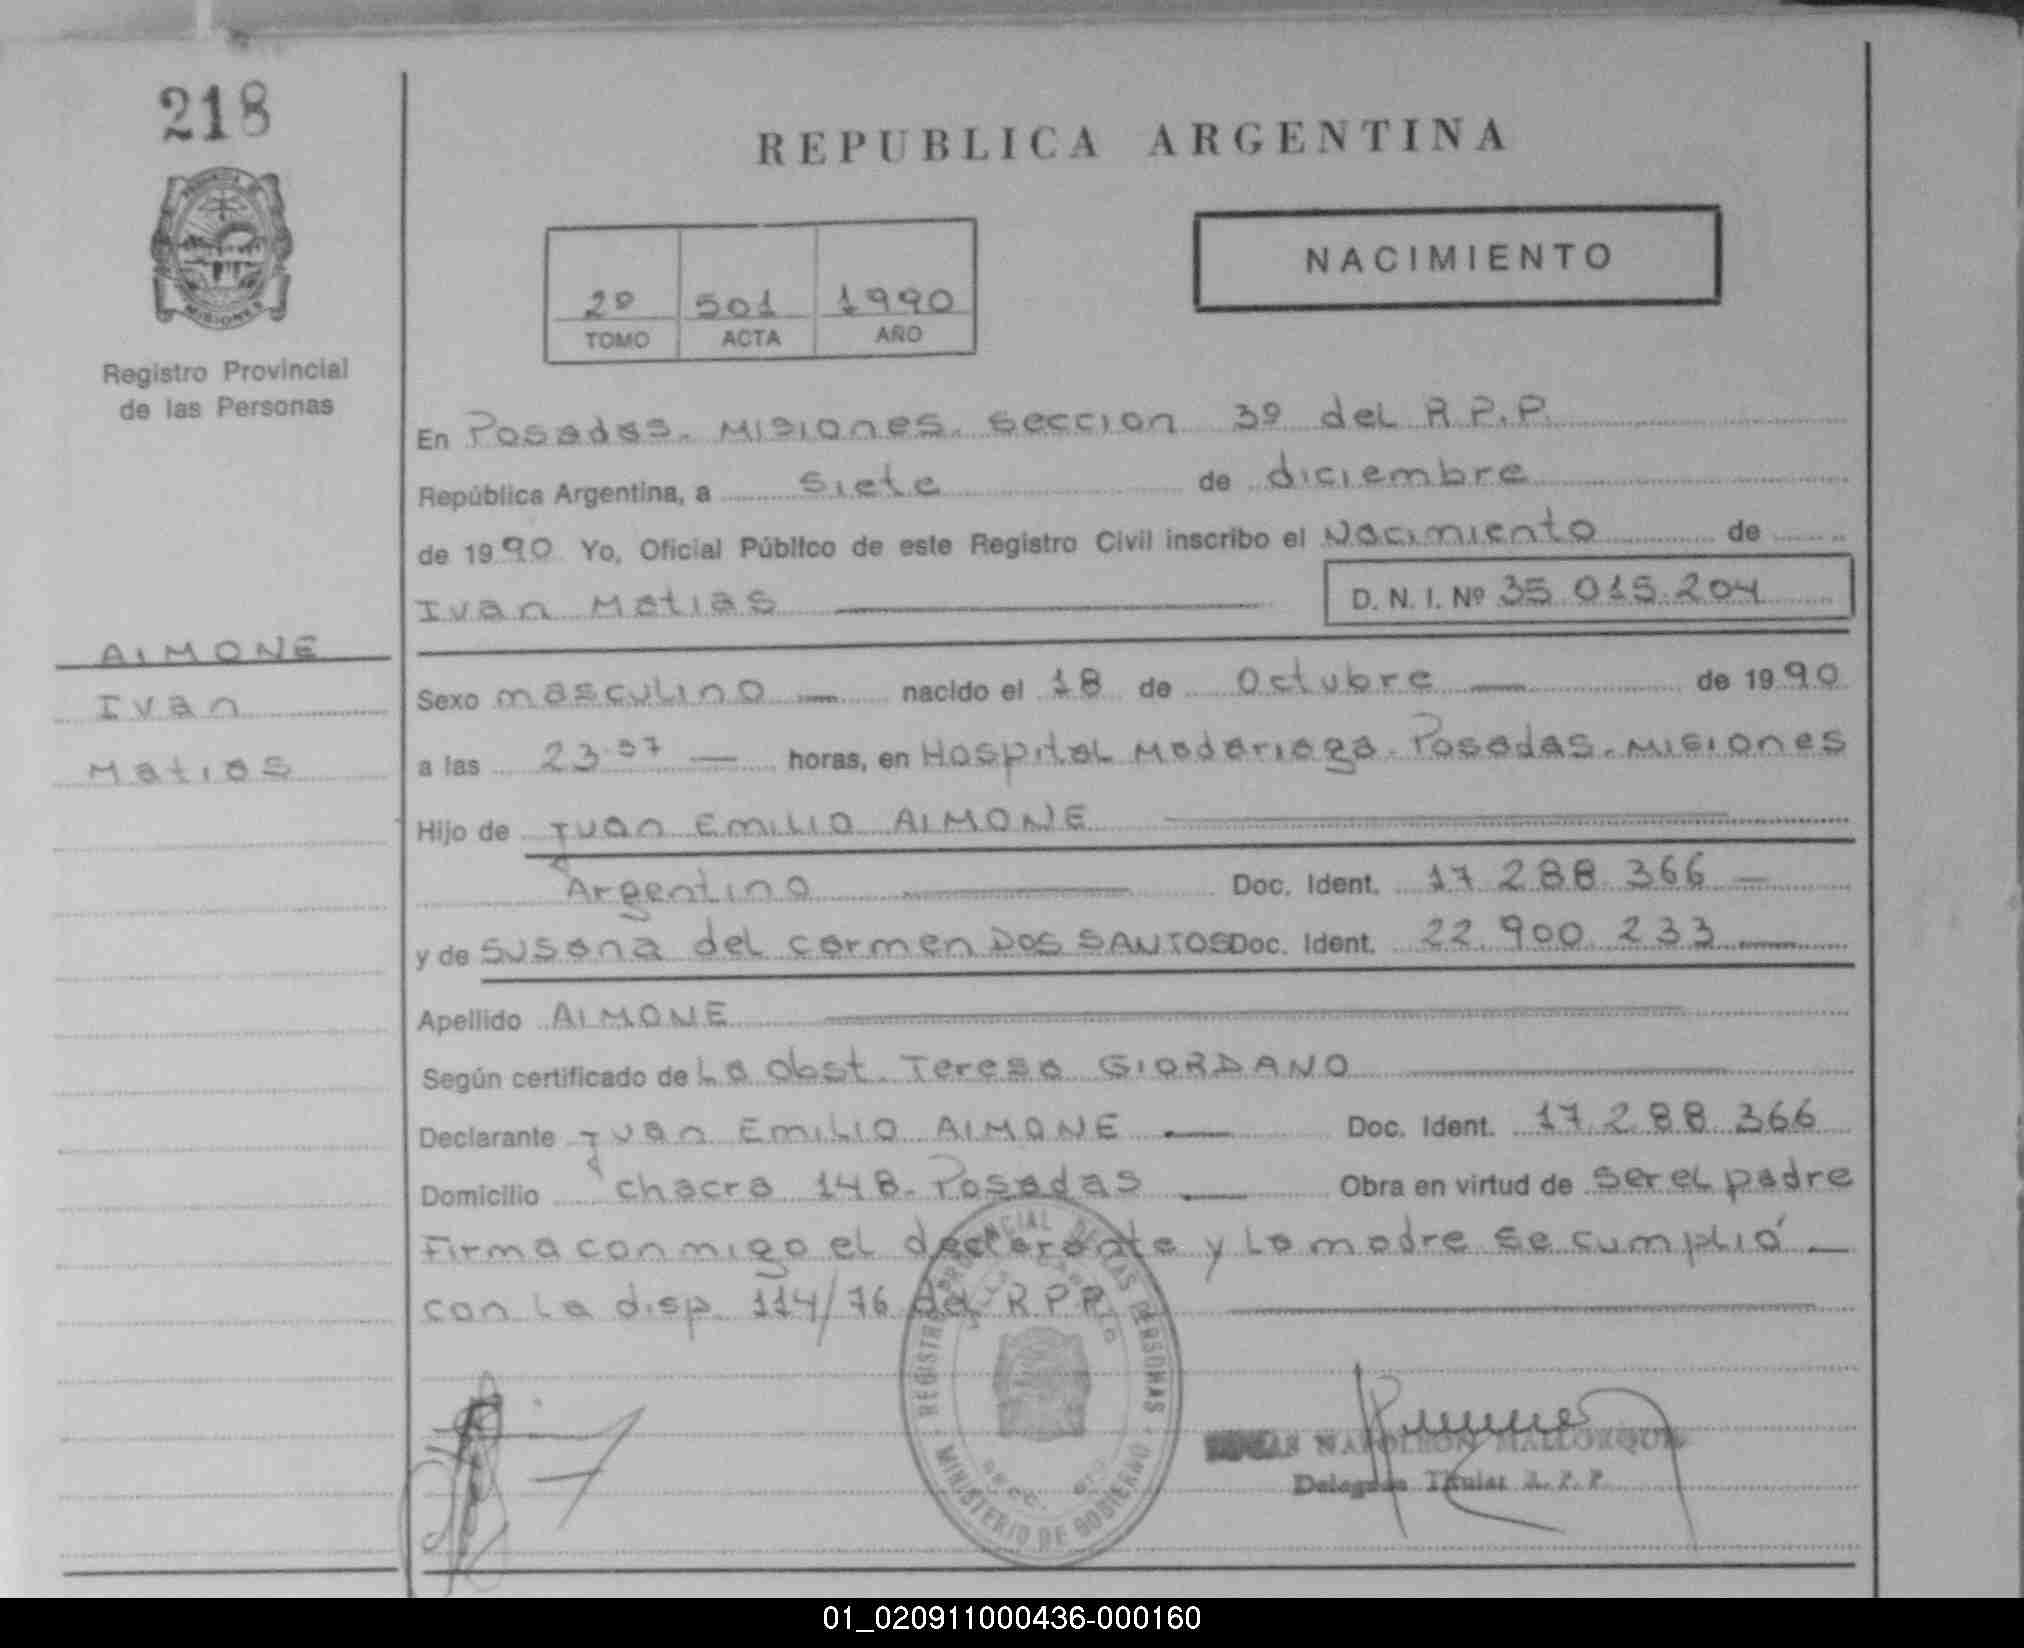 218
PROVINCIA DE
MISIONES
Registro Provincial
de las Personas
AIMONE
Ivan
Matias
REPUBLICA ARGENTINA
2º 501 1990
TOMO ACTA AÑO
NACIMIENTO
En Posadas. Misiones. seccion 3º del R.P.P.
República Argentina, a siete de diciembre
de 1990 Yo, Oficial Público de este Registro Civil inscribo el Nacimiento de
Ivan Matias D. N. I. Nº 35.015.204
Sexo masculino nacido el 18 de Octubre de 1990
a las 23.37 horas, en Hospital Madariaga. Posadas. Misiones
Hijo de Juan Emilio AIMONE
Argentino Doc. Ident. 17.288.366
y de Susana del carmen DOS SANTOS Doc. Ident. 22.900.233
Apellido AIMONE
Según certificado de La obst. Teresa GIORDANO
Declarante Juan Emilio AIMONE Doc. Ident. 17.288.366
Domicilio chacra 148. Posadas Obra en virtud de ser el padre
Firma conmigo el declarante y la madre se cumplió
con la disp. 114/76 del R.P.P.
REGISTRO PROVINCIAL DE LAS PERSONAS
MINISTERIO DE GOBIERNO
NAPOLEON MALLORQUIN
Delegado Titular R. P. P.
01_020911000436-000160